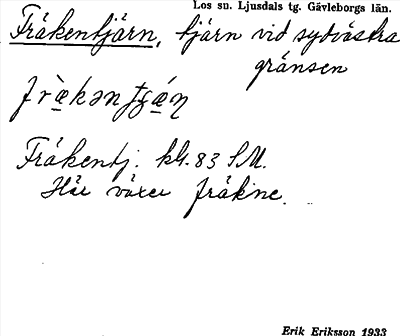 Los sn. Ljusdals tg. Gävleborgs län.
Fräkentjärn, tjärn vid sydvästra
gränsen
Fräkentj. kb. 83 S.M.
Här växer fräkne.
Erik Eriksson 1933